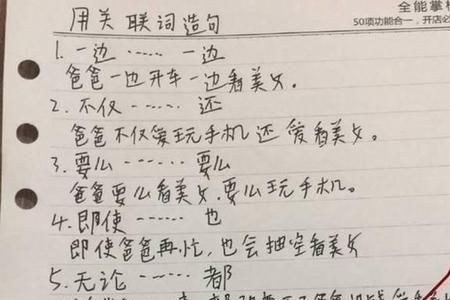 全能掌柜
50项功能合一,开店必
用关联词造句
1. 一边 …… 一边
爸爸一边开车一边看美女。
2. 不仅 …… 还
爸爸不仅爱玩手机还爱看美女。
3. 要么 …… 要么
爸爸要么看美女,要么玩手机。
4. 即使 …… 也
即使爸爸再忙,也会抽空看美女
5. 无论 …… 都